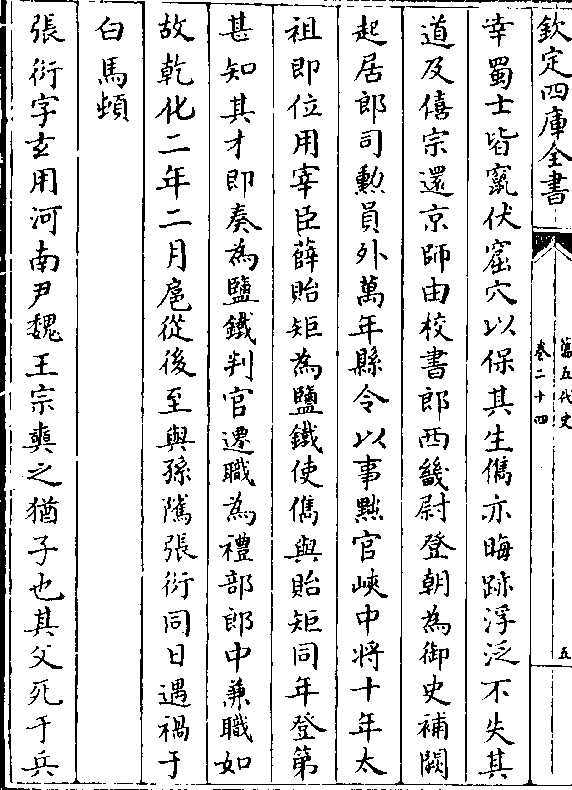 欽定四庫全書
舊五代史
卷二十四
五
幸蜀士皆竄伏窟穴以保其生儁亦晦跡浮泛不失其
道及僖宗還京師由校書郎西畿尉登朝為御史補闕
起居郎司勲員外萬年縣令以事黜官峽中將十年太
祖即位用宰臣薛貽矩為鹽鐵使儁與貽矩同年登第
甚知其才即奏為鹽鐵判官遷職為禮部郎中兼職如
故乾化二年二月扈從後至與孫隲張衍同日遇禍于
白馬頓
張衍字玄用河南尹魏王宗奭之猶子也其父死于兵